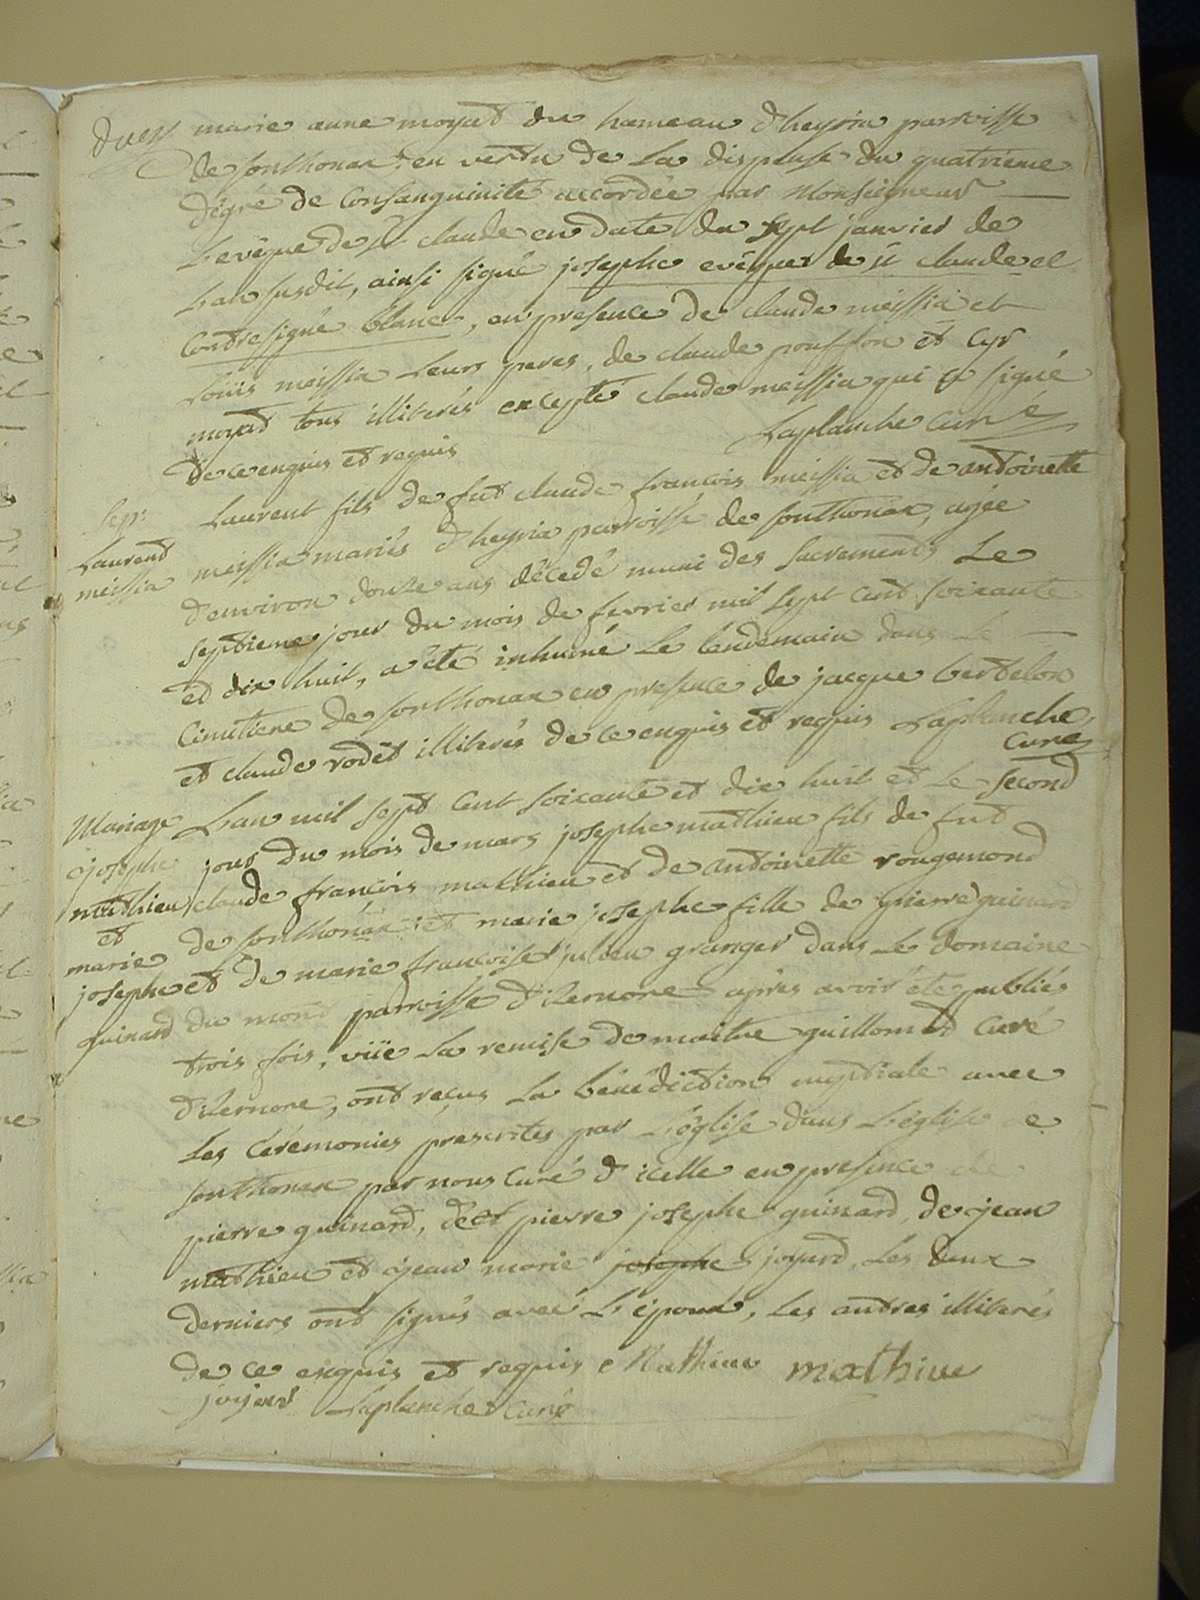 marie anne moyat du hameau d'heyria parroisse
de sonthonax : en vertu de La dispense du quatrieme
dégré de Consanguinité accordée par Monseigneur
L'evêque de st claude en date du sept janvier de
L'an susdit, ainsi signé josephe evêque de st claude et
Contresigné blanc, en presence de claude meissia et
Loüis meissia Leurs peres, de claude pouffon et Cyr
moyat tous illiterés excepté claude meissia qui a signé
de ce enquis et requis Laplanche Curé
Sep:
Laurend
meissia
Laurent fils de fut claude françois meissia et de antoinette
meissia mariés d'heyria parroisse de sonthonax, agée
d'environ douze ans décedé muni des sacrements Le
septieme jour du mois de fevrier mil sept cent soixante
et dix huit, a été inhumé Le lendemain dans Le
Cimetiere de sonthonax en presence de jacque berthelon
et claude rodet illiterés de ce enquis et requis Laplanche
Curé
Mariage
josephe
mathieu
et
marie
josephe
guinard
L'an mil sept cent soixante et dix huit et Le second
jour du mois de mars josephe mathieu fils de fut
claude françois mathieu et de antoinette rougemond
de sonthonax : et marie josephe fille de pierre guinard
et de marie françoise julien granger dans Le domaine
du mont parroisse d'izernore après avoir été publiés
trois fois, vüe La remise de maitre guillomot Curé
d'izernore, ont reçus La bénédiction nuptiale avec
Les Cérémonies prescrites par L'église dans L'église de
sonthonax par nous Curé d'icelle en presence de
pierre guinard, de pierre josephe guinard, de jean
mathieu et jean marie josephe joyard Les deux
derniers ont signés avec L'époux, Les autres illiterés
de ce enquis et requis Mathieu mathieu
joyard Laplanche Curé